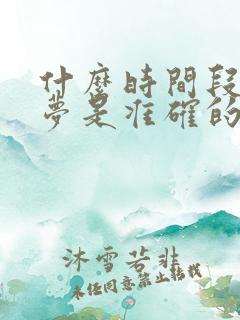 什麼時間段
夢是准確的
沐雪若非
未经同意禁止转载